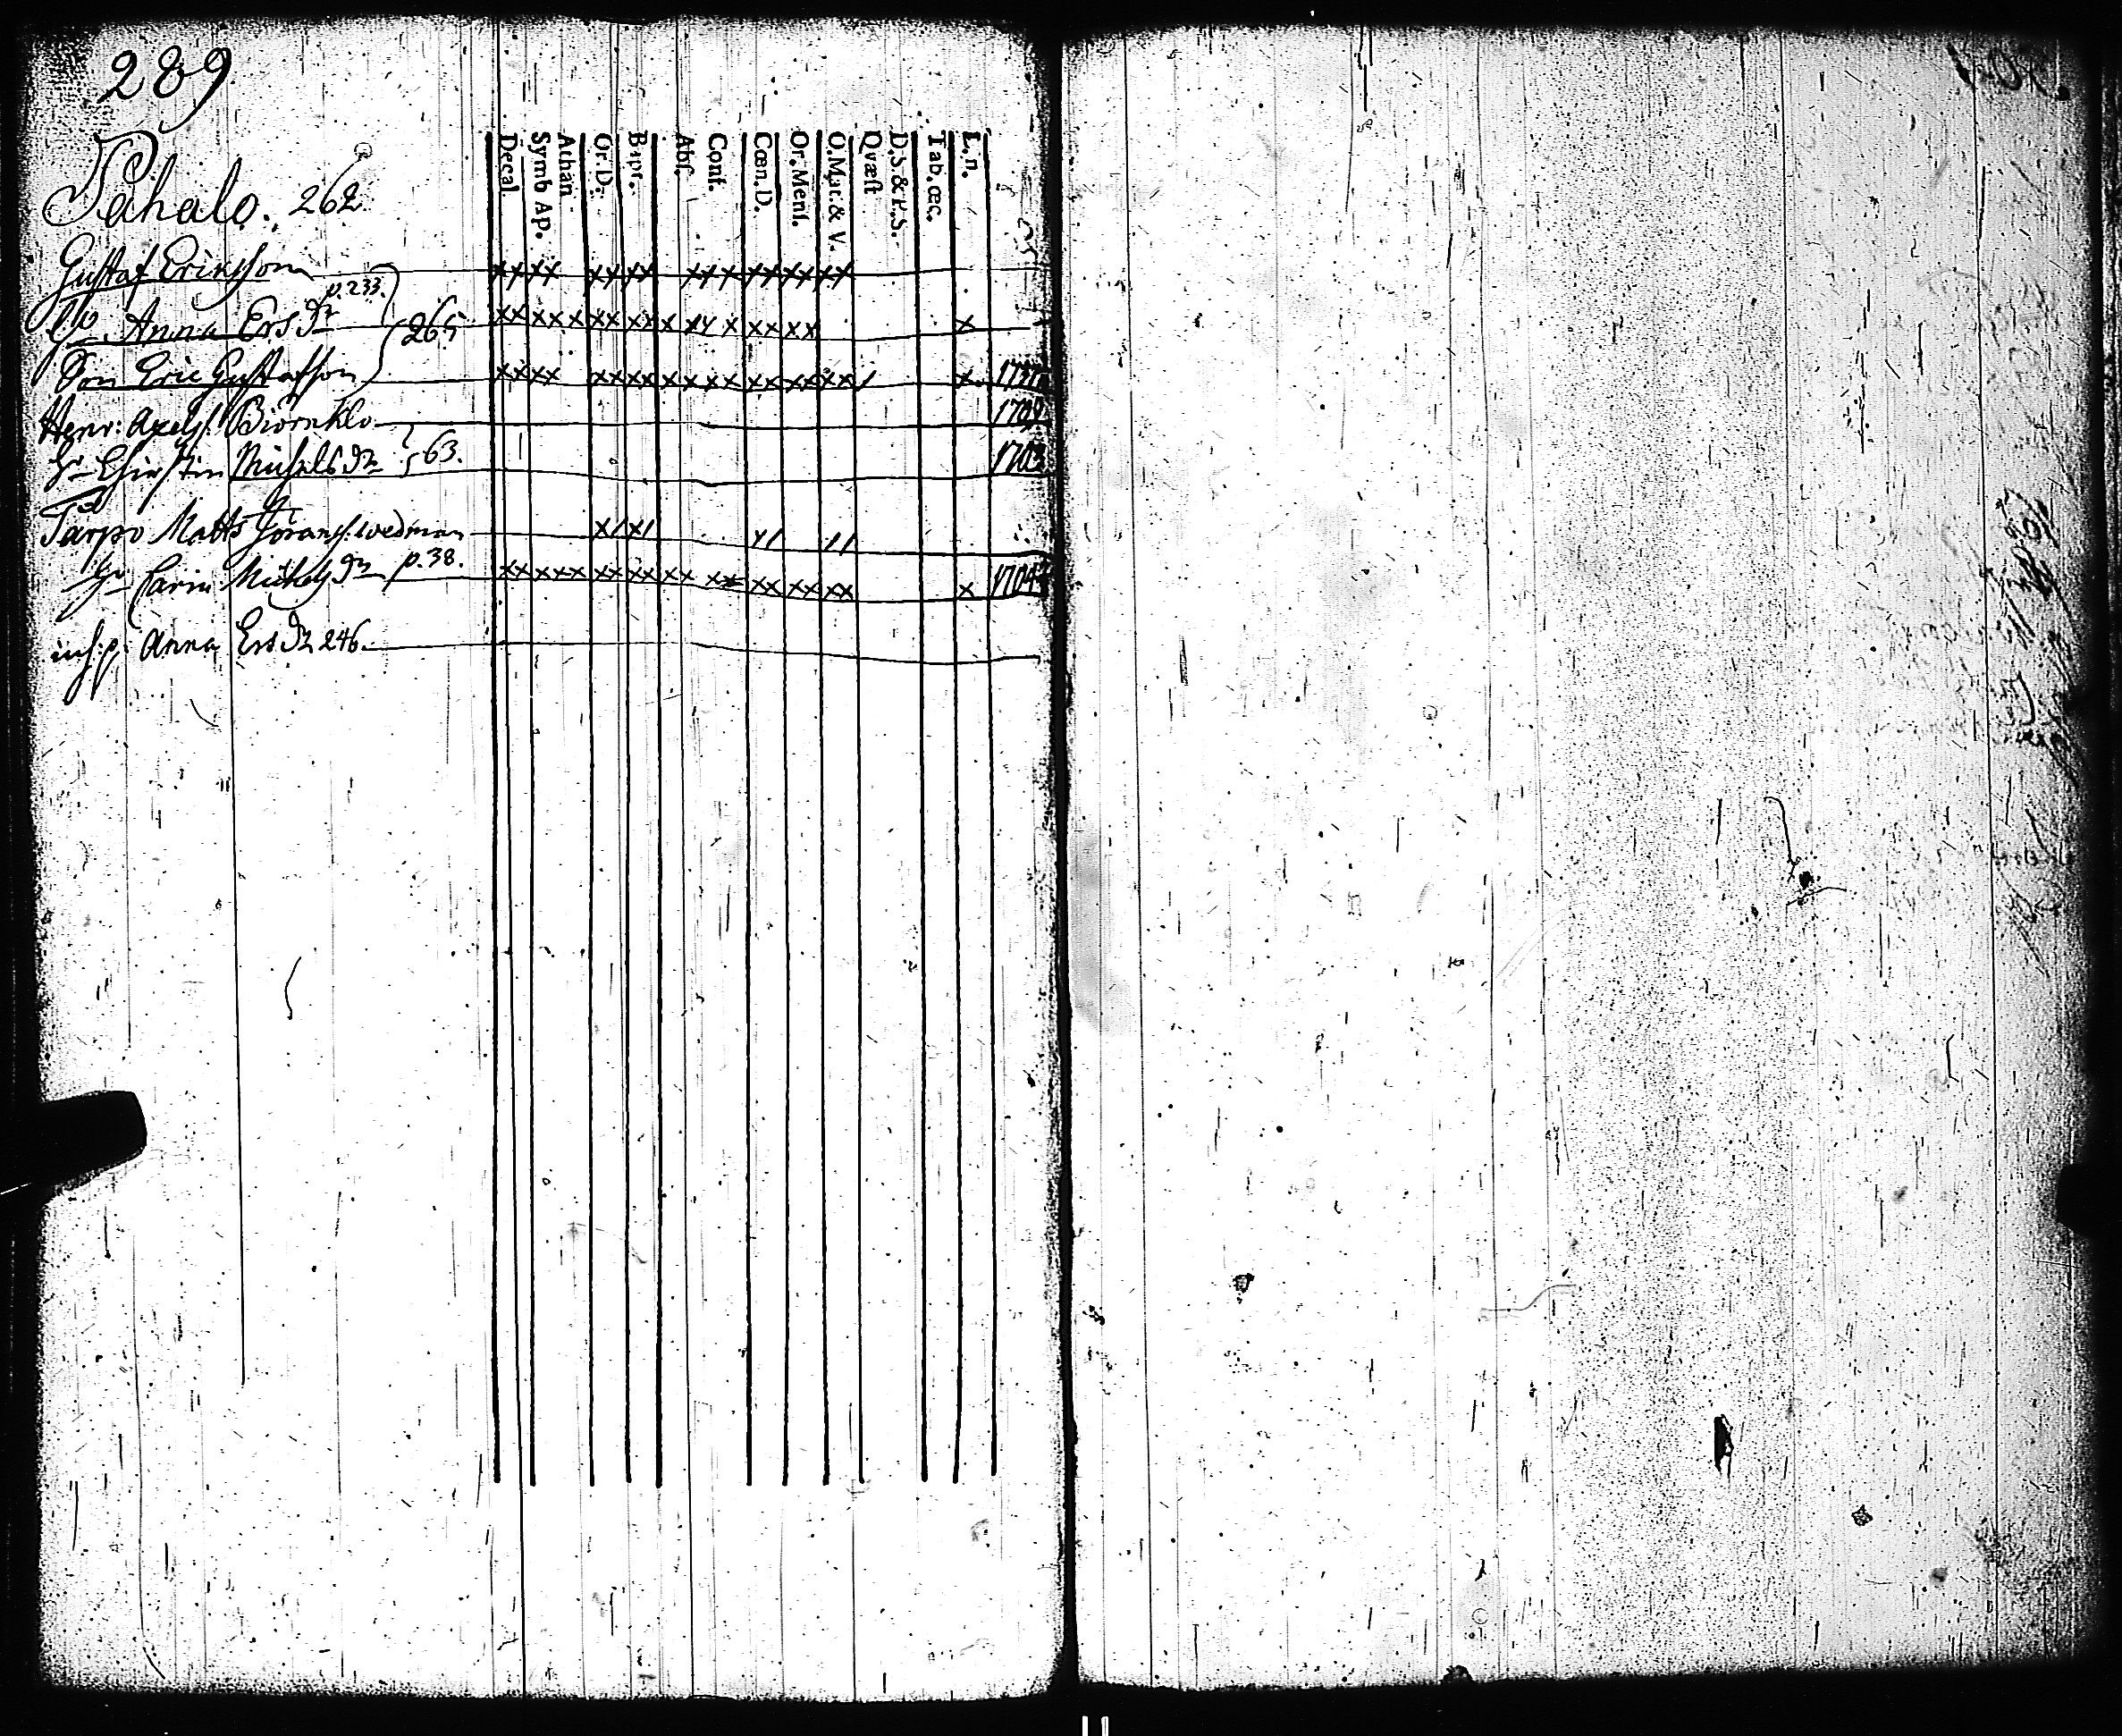 289
Pahalo. 262
Decal. Symb Ap. Athan Or. D. Bapt. Abs. Conf. Cœn. D. Or. Mens. O. Mat. & V. Qvæst D. S. & P. S. Tab. œc. L. n.
Gustaf Eriksson xx xx xx xx xx x xx xx xx
p. 233.
h:o Anna Ers dr 265 xx xxx xx xxx xx x xx xx x
Son Eric Gustafson xx xx xx xx xx xxx xx xx xx / x
Henr: Axels. Biörnklo 1702
h:o Chirstin Michels dr 63. 1703
Tarpo Matts Jörans. wedman x/ x/ x/ //
h:o Carin Michels dr p. 38. xx xxx xx xx xx xx xx xx xx x 1704
inh: p. Anna Ers dr 246